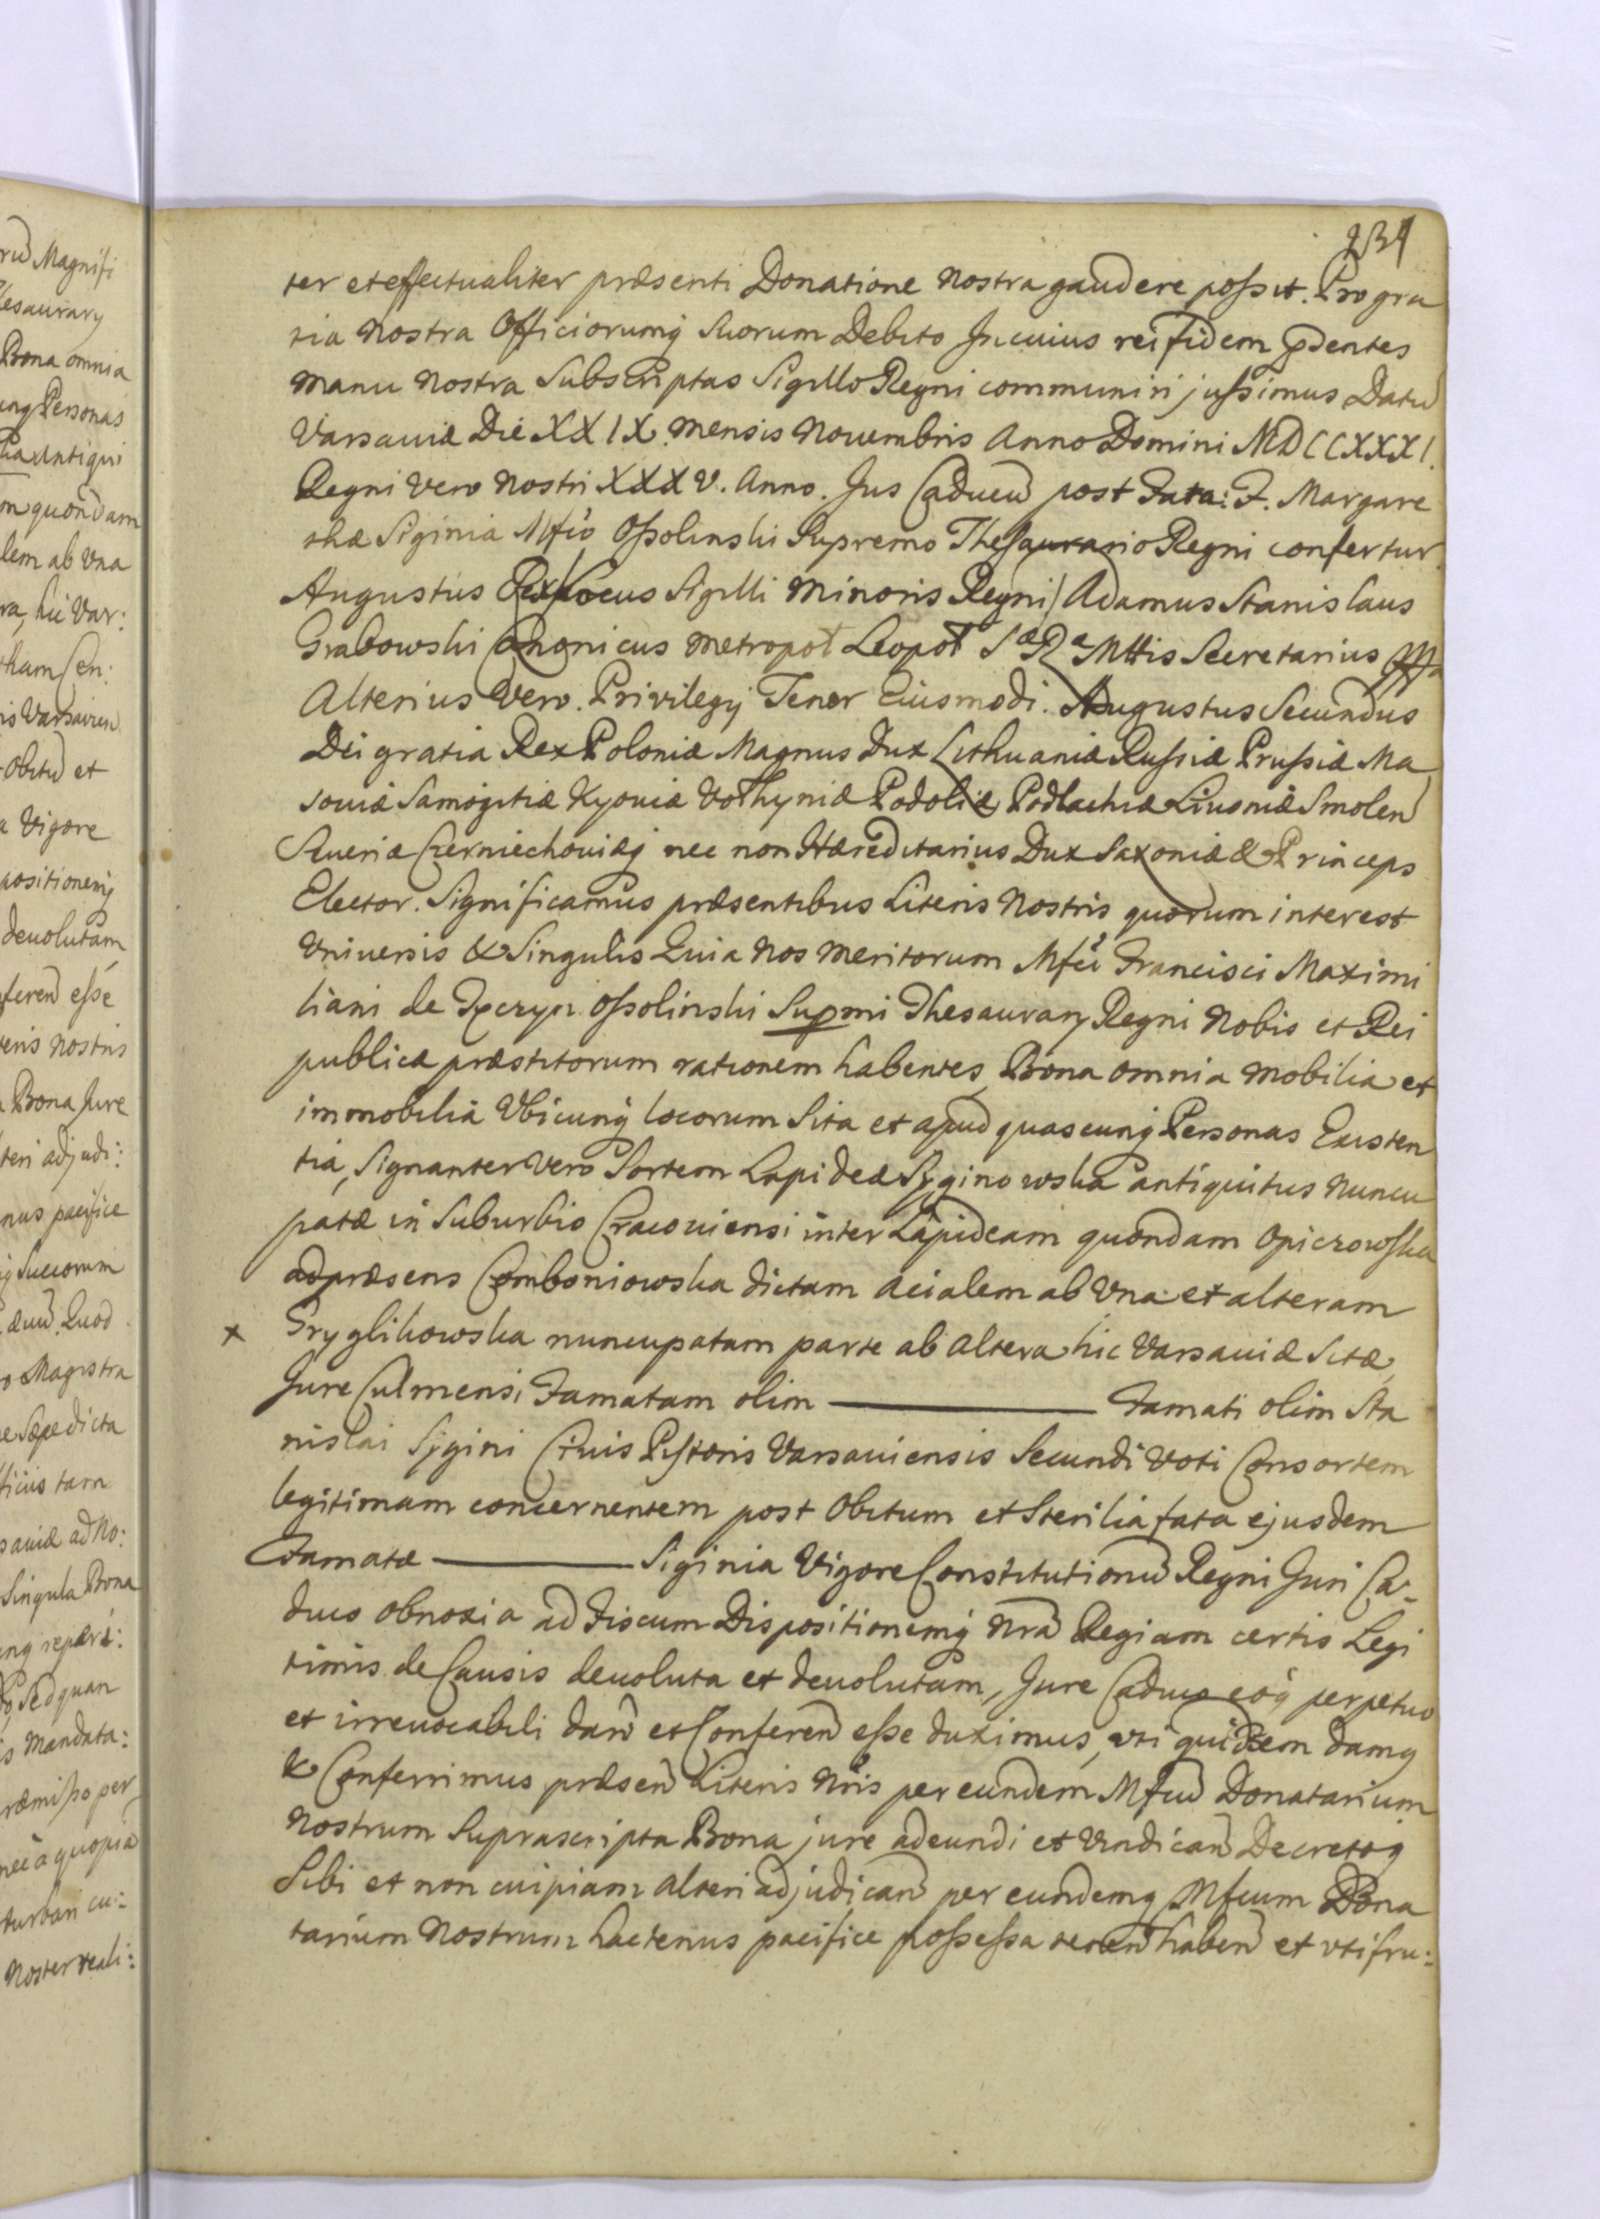 231
ter et effectualiter præsenti Donatione nostra gaudere possit. Pro gra
tia nostra Officiorumq Suorum Debito Jn cuius rei fidem pdentes
manu nostra Subscriptas Sigillo Regni communiri jussimus Datu
Varsaviæ Die XXIX mensis Novembris Anno Domini MDCCXXXI.
Regni Vero Nostri XXXV. Anno. Jus Caducu post Fata: F. Margare
thæ Siginia Mfco Ossolinski Supremo Thesaurario Regni confertur
Augustus Rex Locus Sigilli Minoris Regni Adamus Stanislaus
Grabowski Canonicus metropol Leopol Sæ Ræ Mttis Secretarius
Alterius Vero. Privilegy Tenor Eiusmodi. Augustus Secundus
Dei gratia Rex Poloniæ Magnus Dux Lithuaniæ Russiæ Prussiæ Ma
soviæ Samogitiæ Kyoviæ Volhyniæ Podoliæ Podlachiæ Livoniæ Smolen
Severiæ Czerniechoviæq nec non Hæreditarius Dux Saxoniæ & Princeps
Elector. Significamus præsentibus Literis Nostris quorum interest
Universis & Singulis Quia Nos Meritorum Mfci Francisci Maximi
liani de Tęczyn Ossolinski Supmi Thesaurary Regni Nobis et Rei
publicæ præstitorum rationem habentes, Bona omnia mobilia et
immobilia Ubicunq locorum Sita et apud quascunq Personas Existen
tia, Signanter Vero Sortem Lapideæ Syginowska antiquitus nuncu
patæ in Suburbio Cracoviensi inter Lapideam quondam Opiczowska
ad præsens Comboniowska dictam acialem ab Una et alteram
x Gryglikowska nuncupatam parte ab altera hic Varsaviæ Sitæ,
Jure Culmensi Famatam olim ——— Famati olim Sta
nislai Sygini Civis Pistoris Varsaviensis Secundi Voti Consortem
legitimam concernentem post Obitum et Sterilia fata ejusdem
Famatæ ——— Siginia Vigore Constitutionu Regni Juri Ca-
duco obnoxia ad Fiscum Dispositionemq Nra Regiam certis Legi
timis de Causis devoluta et devolutam, Jure Caduco eoq perpetuo
et irrevocabili dan et Conferen esse duximus, uti quidem damq
& Conferrimus præsen Literis Nris per eundem Mfcu Donatarium
Nostrum Suprascripta Bona jure adeundi et Vindican Decretoq
Sibi et non cuipiam alteri adjudican per eundemq Mfcum Dona
tarium Nostrum hactenus pacifice possessa tenen haben et utifru: